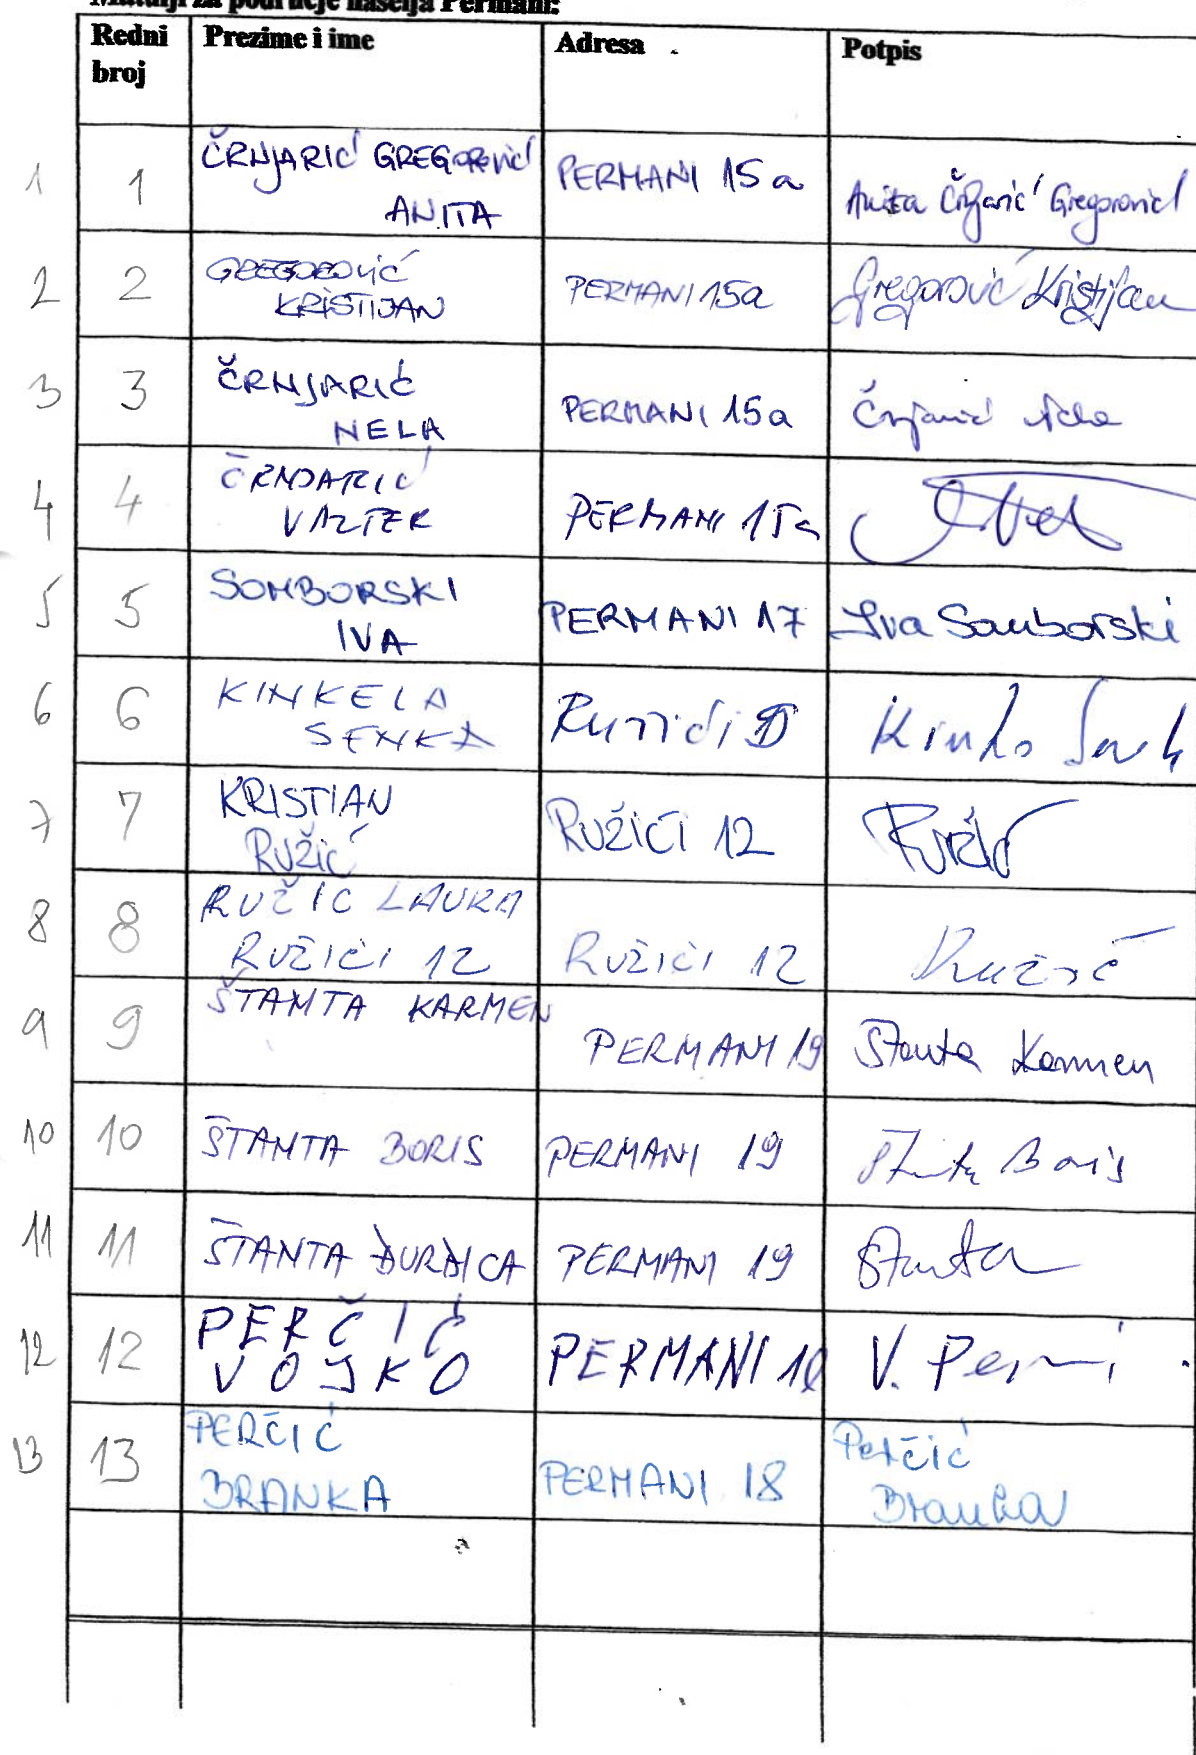 Matulji za područje naselja Permani:
Redni broj Prezime i ime Adresa Potpis
1 1 ČRNJARIĆ GREGOROVIĆ ANITA PERMANI 15a Anita Črnjarić Gregorović
2 2 GREGOROVIĆ KRISTIJAN PERMANI 15a Gregorović Kristijan
3 3 ČRNJARIĆ NELA PERMANI 15a Črnjarić Nela
4 4 ČRNJARIĆ VALTER PERMANI 15a
5 5 SOMBORSKI IVA PERMANI 17 Iva Somborski
6 6 KINKELA SENKA
7 7 KRISTIAN Ružić RUŽIĆI 12 Ružić
8 8 RUŽIĆ LAURA RUŽIĆI 12 RUŽIĆI 12 Ružić
9 9 ŠTANTA KARMEN PERMANI 19 Štanta Karmen
10 10 ŠTANTA BORIS PERMANI 19 Štanta Boris
11 11 ŠTANTA ĐURĐICA PERMANI 19 Štanta
12 12 PERČIĆ VOJKO PERMANI V.
13 13 PERČIĆ BRANKA PERMANI 18 Perčić Branka